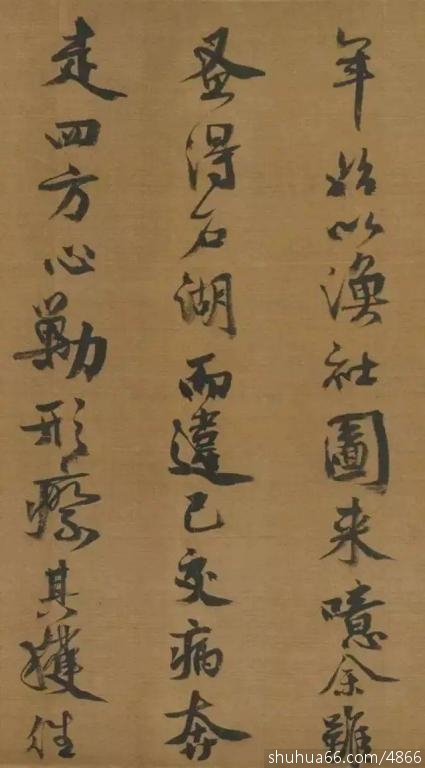 年始以漁社圖来噫余雖
蚤得石湖而違己交病奔
走四方心勦形瘵其獲往
shuhua66.com/4866